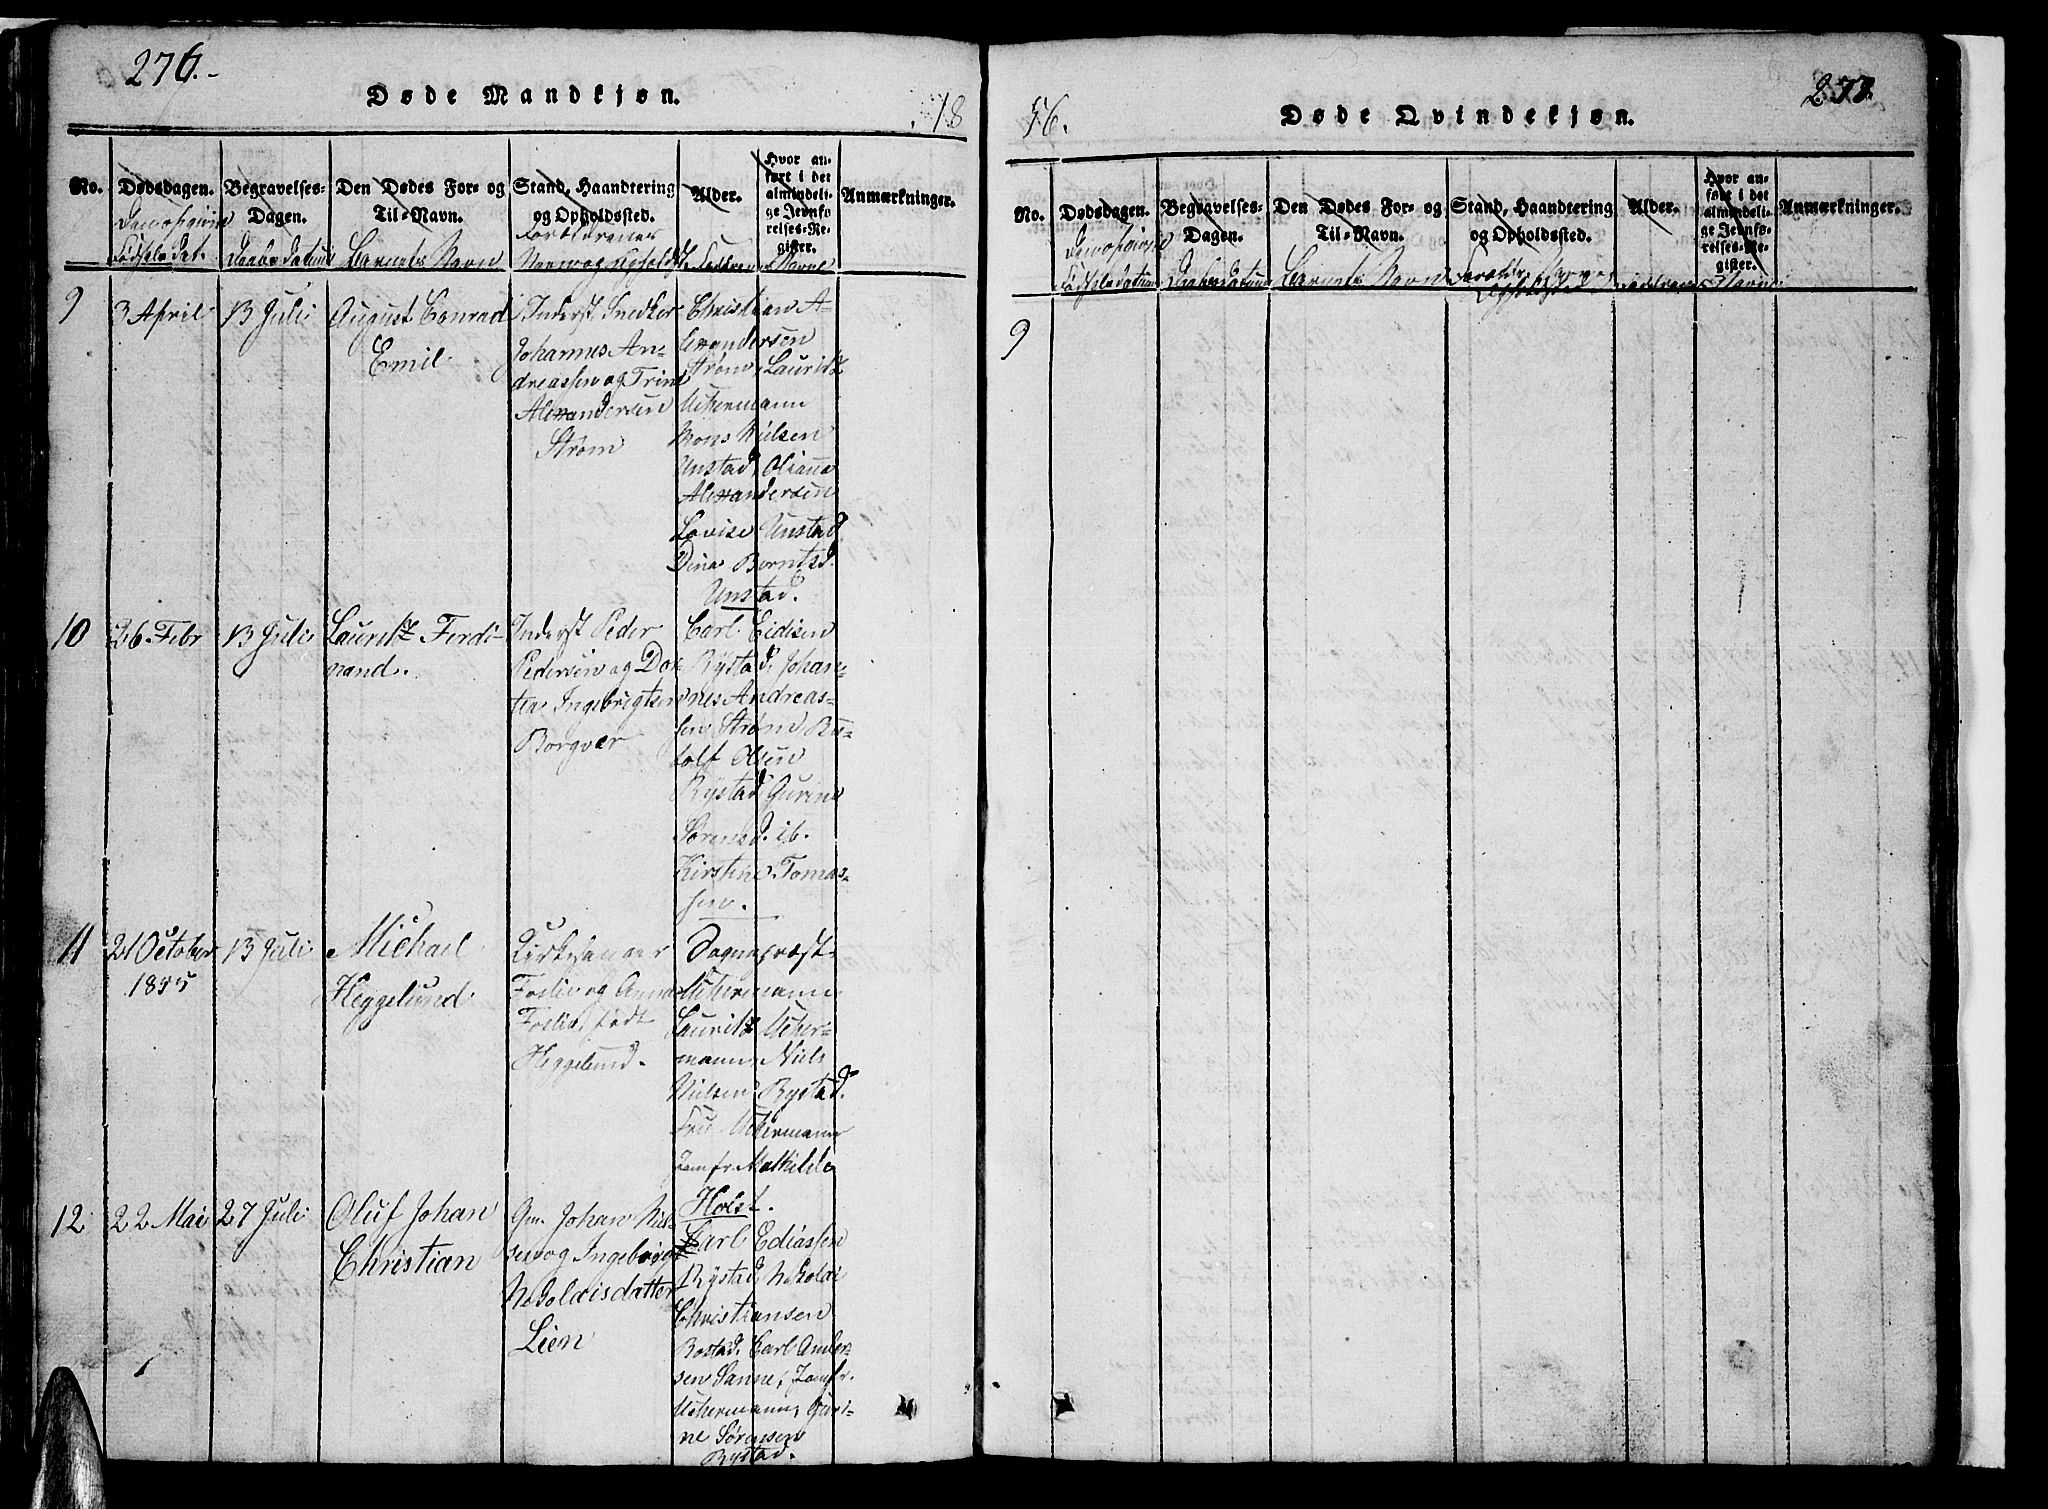 276.
Døde Mandkjøn.
18
No.
Dødsdagen.
Begravelses-
Dagen.
Den Dødes For- og
Til-Navn.
Stand, Haandtering
og Opholdssted.
Alder.
Hvor an-
ført i det
almindeli-
ge Jevnfø-
relses-Re-
gister.
Anmærkninger.
Fødsels Dat.
Daabs Datum
Barnets Navn
Forældrenes
Navn og Opholdst.
Faddernes Navne
9
3 April
13 Juli
August Conrad
Emil
Inderst Snedker
Johannes An-
dreassen og Trine
Alexandersen
Strøm
Christian A-
lexandersen
Strøm, Lauritz
Uchermann
Mons Nielsen
Unstad, Oliana
Alexandersen
Lovise Unstad
Dina Berntsd.
Unstad.
10
26. Febr
13 Juli
Lauritz Ferdi-
nand.
Inderst Peder
Pedersen og Dor-
tea Ingebrigtsen
Borgvær
Carl Eidisen
Rystad, Johan-
nes Andreas-
sen Strøm Ru-
dolf Olsen
Rystad, Gurine
Sørensd. ib.
Kirstine Tomas-
sen.
11
21 October
1855
13 Juli
Michael
Heggelund
Kirkesanger
Foslie og Anna
Foslie, født
Heggelund.
Sognepræst
Uchermann
Lauritz Ucher-
mann, Niels
Nielsen Rystad.
Fru Uchermann
Jomfr. Mathilde
Holst.
12
22 Mai
27 Juli
Oluf Johan
Christian
Gm. Johan Niel-
sen og Ingeborg
Nikolaisdatter
Lien
Carl Ediassen
Rystad, Nikolai
Christiansen
Bostad, Carl Ander-
sen Sanne, Jomfr.
Uchermann, Guri-
ne Sørensen
Rystad.
56.
Døde Qvindekjøn.
277.
No.
Dødsdagen.
Begravelses-
Dagen.
Den Dødes For- og
Til-Navn.
Stand, Haandtering
og Opholdssted.
Alder.
Hvor an-
ført i det
almindeli-
ge Jevnfø-
relses-Re-
gister.
Anmærkninger.
Fødselsdatum
Daabsdatum
Barnets Navn
Faddernes Navne
9